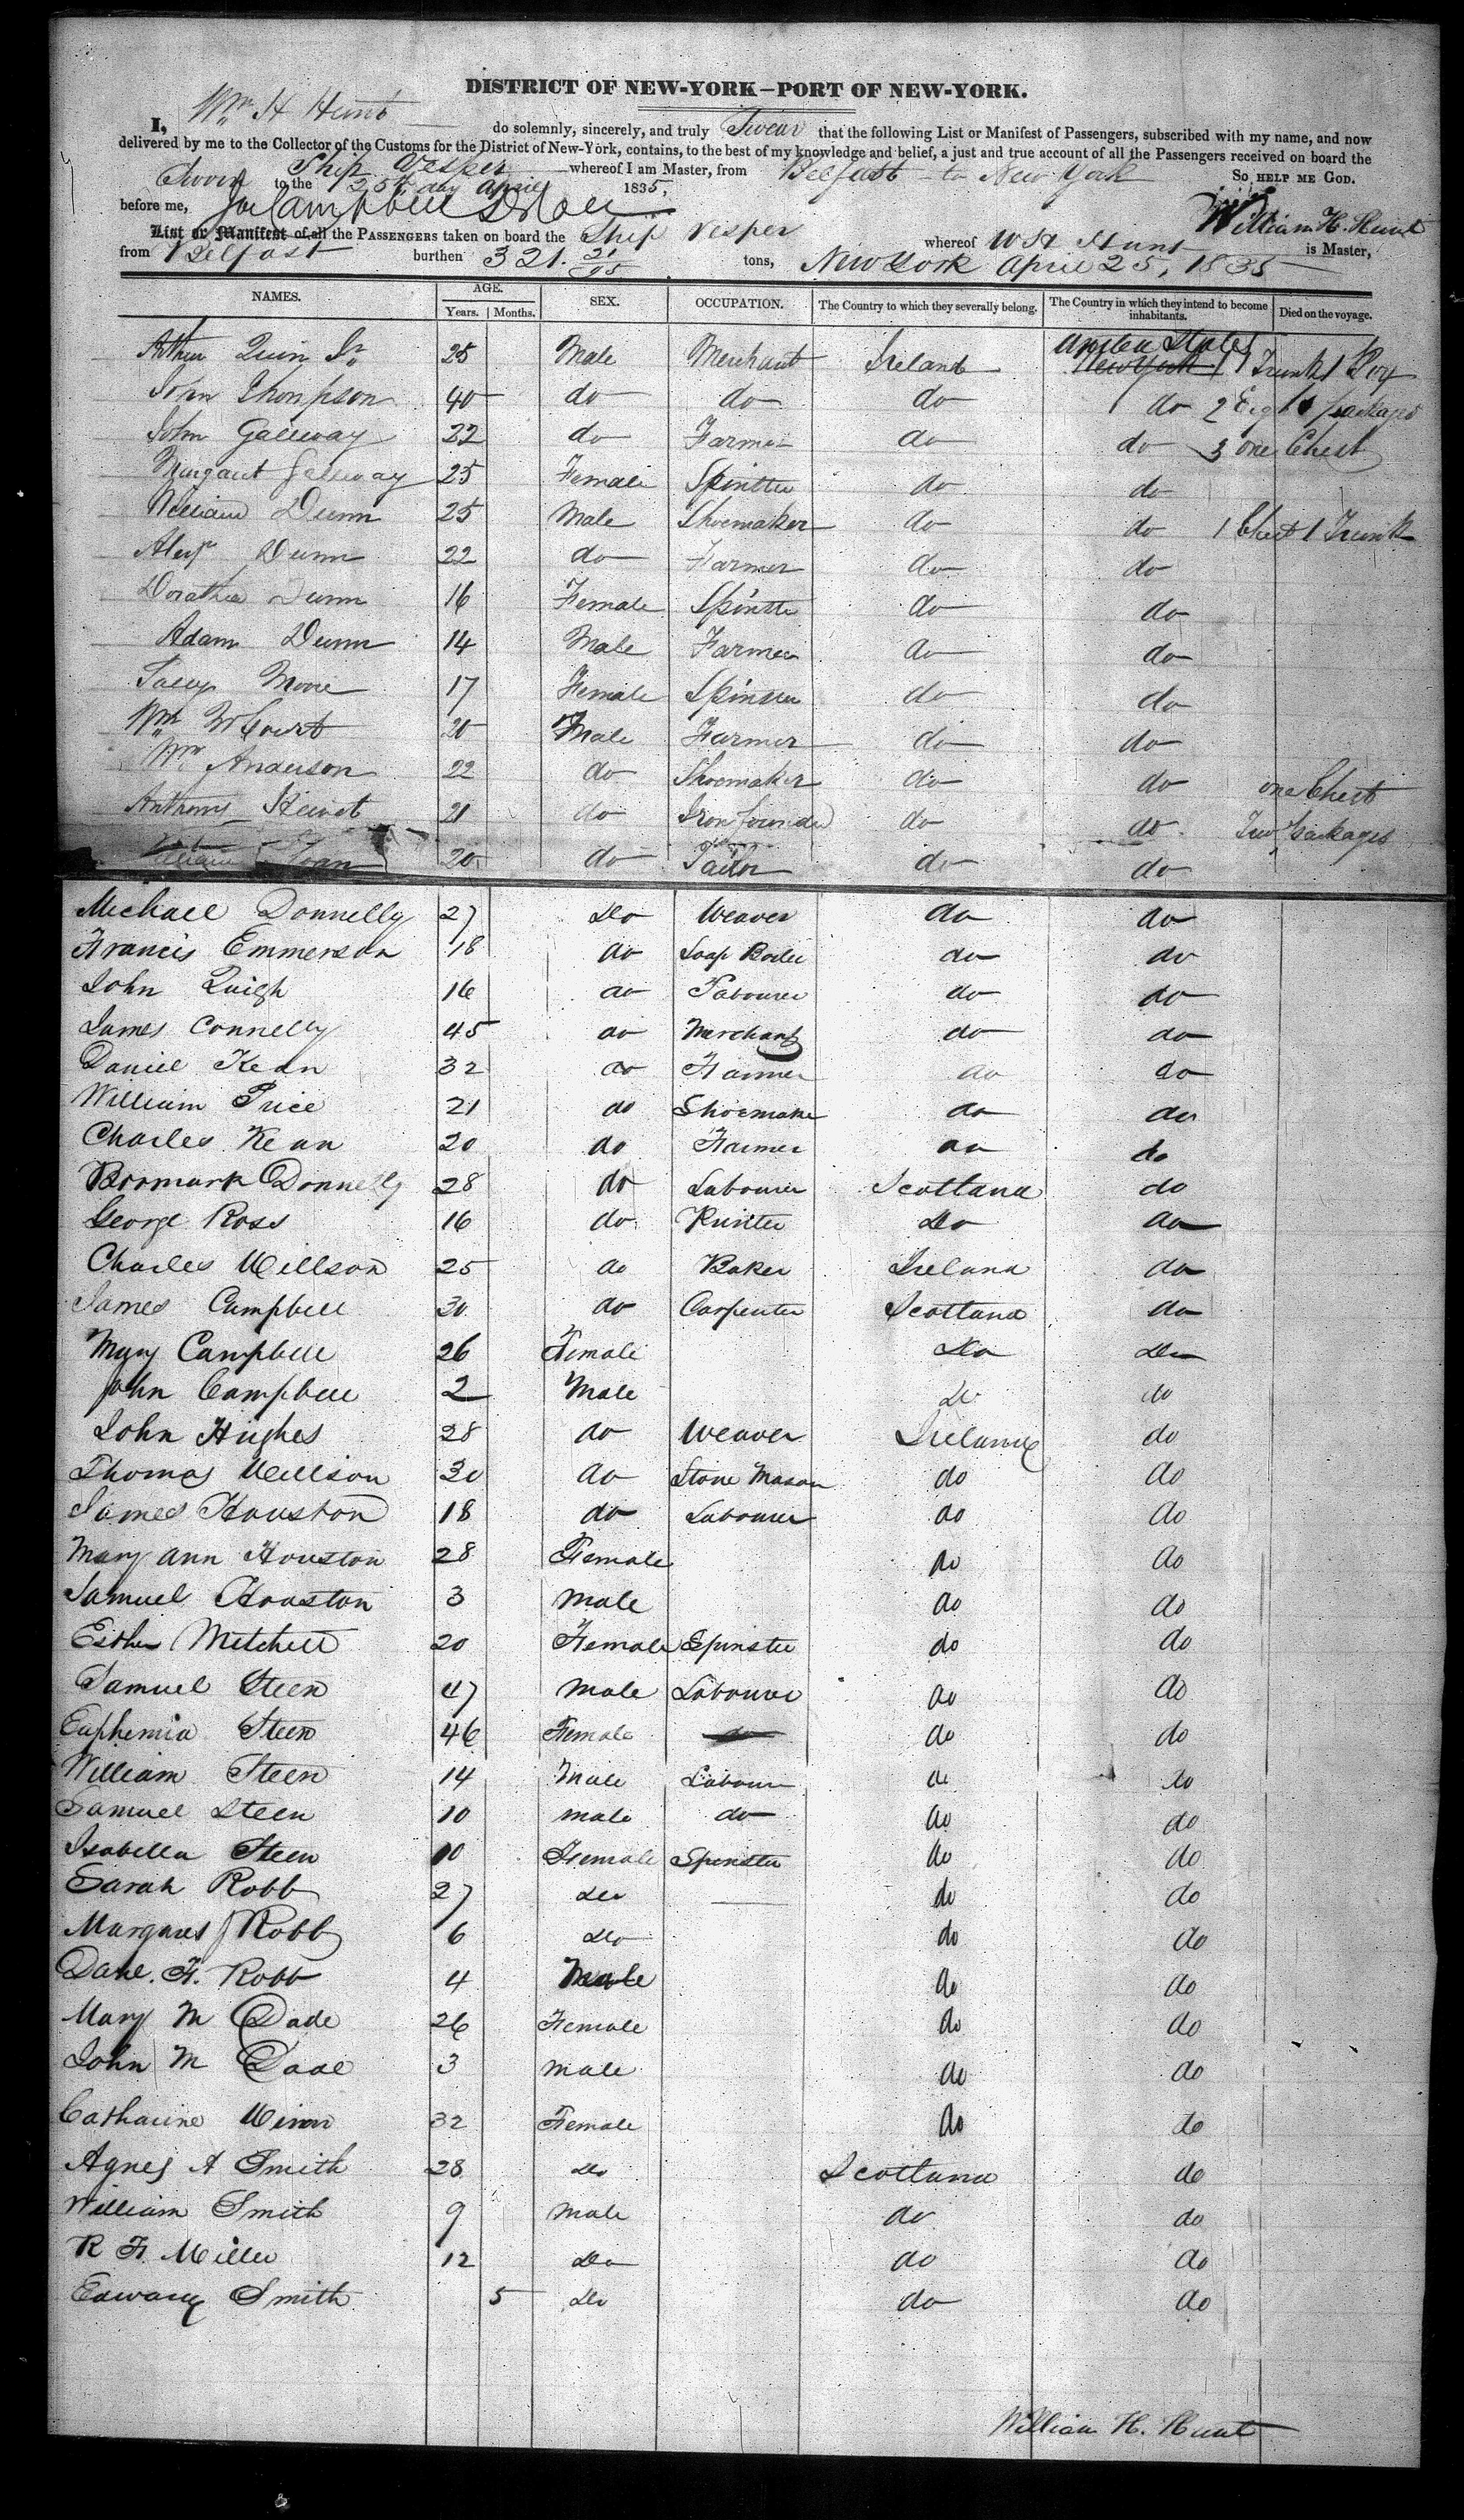 DISTRICT OF NEW-YORK—PORT OF NEW-YORK.
I, Wm H Hunt do solemnly, sincerely, and truly Swear that the following List or Manifest of Passengers, subscribed with my name, and now
delivered by me to the Collector of the Customs for the District of New-York, contains, to the best of my knowledge and belief, a just and true account of all the Passengers received on board the
Ship Vesper whereof I am Master, from Belfast to New York
Sworn to the 25th day April 1835, SO HELP ME GOD.
before me, Campbell William H. Hunt
List or Manifest of all the PASSENGERS taken on board the Ship Vesper whereof W H Hunt is Master,
from Belfast burthen 321. 21/95 tons, New York April 25, 1835
NAMES. AGE. Years. Months. SEX. OCCUPATION. The Country to which they severally belong. The Country in which they intend to become inhabitants. Died on the voyage.
United States
Arthur Quin Jr 25 Male Merchant Ireland New York 1 1 Trunk 1 Box
John Thompson 40 do do do do 2 Eight packages
John Galeway 22 do Farmer do do 3 one Chest
Margaret Galeway 25 Female Spinster do do
William Dunn 25 Male Shoemaker do do 1 Chest 1 Trunk
Alexr Dunn 22 do Farmer do do
Dorathea Dunn 16 Female Spinster do do
Adam Dunn 14 Male Farmer do do
Moore 17 Female Spinster do do
Wm 20 Male Farmer do do
Wm Anderson 22 do Shoemaker do do one Chest
Anthony 21 do Iron founder do do Two packages
William 20 do Tailor do do
Michael Donnelly 27 Do Weaver do do
Francis Emmerson 18 do Soap Boiler do do
John Quigh 16 do Labourer do do
James Connelly 45 do Merchant do do
Daniel Kean 32 do Farmer do do
William Price 21 do Shoemaker do do
Charles Kean 20 do Farmer do do
Donnelly 28 do Labourer Scotland do
George Ross 16 do Printer Do do
Charles Willson 25 do Baker Ireland do
James Campbell 30 do Carpenter Scotland do
Mary Campbell 26 Female Do Do
John Campbell 2 Male Do do
John Hughes 28 do Weaver Ireland do
Thomas Willison 30 do Stone Mason do do
James Houston 18 do Labourer do do
Mary Ann Houston 28 Female do do
Samuel Houston 3 Male do do
Esther Mitchell 20 Female Spinster do do
Samuel Steen 47 Male Labourer do do
Euphemia Steen 46 Female do do do
William Steen 14 Male Labourer do do
Samuel Steen 10 male do do do
Isabella Steen 10 Female Spinster do do
Sarah Robb 27 Do do do
Margaret J Robb 6 Do do do
Danl. F. Robb 4 Male do do
Mary M Dade 26 Female do do
John M Dade 3 male do do
Catharine 32 Female do do
Agnes A Smith 28 Do Scotland do
William Smith 9 Male do do
R F. Miller 12 Do do do
Edward Smith 5 Do do do
William H. Hunt